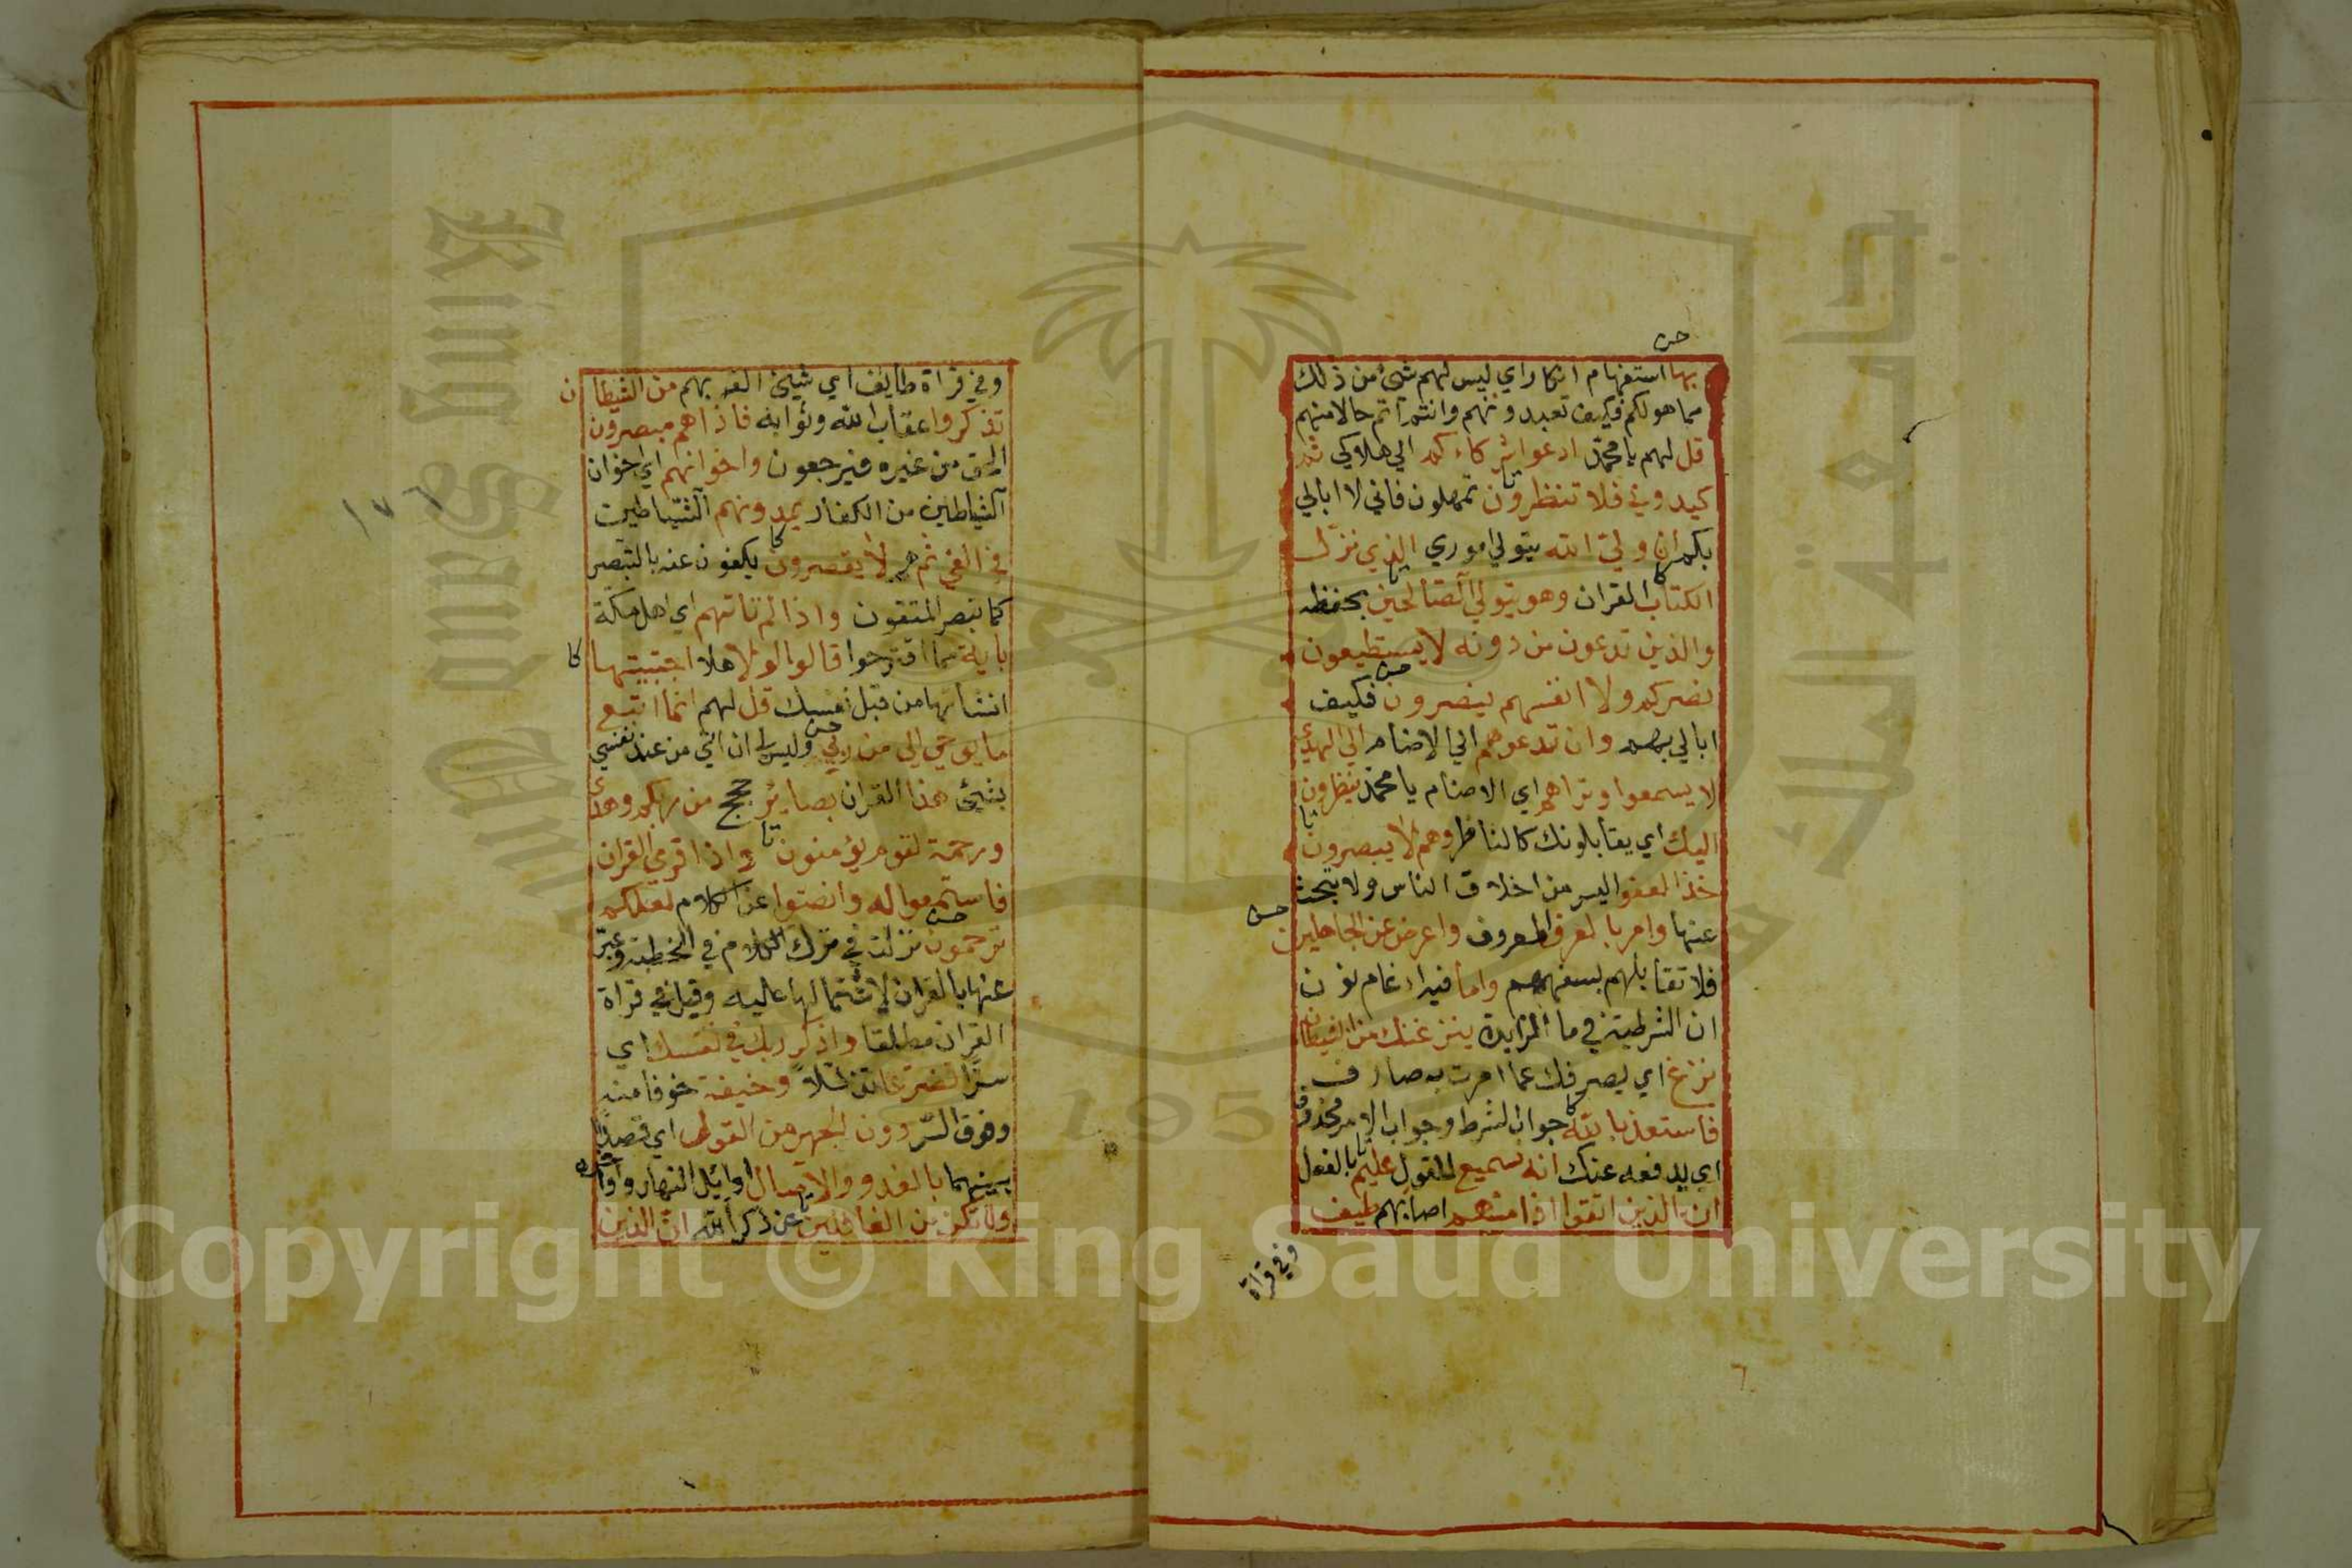 حسن
بها استفهام انكار اي ليس لهم شئ من ذلك
مما هو لكم فكيف تعبدونهم وانتم اتم حالا منهم
قل لهم يا محمد ادعوا شركاءكم الي هلاكي ثم
كيدوني فلا تنظرون تمهلون فاني لا ابالي
بكم ان ولي الله يتولي اموري الذي نزل
الكتاب القران وهو يتولي الصالحين بحفظه
والذين تدعون من دونه لا يستطيعون
نصركم ولا انفسهم ينصرون فكيف
ابالي بهم وان تدعوهم اي الاصنام الي الهدي
لا يسمعوا وتراهم اي الاصنام يا محمد ينظرون
اليك اي يقابلونك كالناظر وهم لا يبصرون
خذ العفو اليسر من اخلاق الناس ولا تبحث
عنها وامر بالعرف المعروف واعرض عن الجاهلين
فلا تقابلهم بسفههم واما فيه ادغام نون
ان الشرطية في ما المزايدة ينزغنك من الشيطان
نزغ اي يصرفك عما امرت به صارف
فاستعذ بالله جواب الشرط وجواب الامر محذوف
اي يدفعه عنك انه سميع للقول عليم بالفعل
ان الذين اتقوا اذا مسهم اصابهم طيف
وفي قراة
وفي قراة طايف اي شيئ الم بهم من الشيطان
تذكروا عقاب الله وثوابه فاذا هم مبصرون
الحق من غيره فيرجعون واخوانهم اي اخوان
الشياطين من الكفار يمدونهم الشياطين
في الغي ثم هم لا يقصرون يكفون عنه بالتبصر
كما تبصر المتقون واذا لم تاتهم اي اهل مكة
باية مما اقترحوا قالوا لولا هلا اجتبيتها
انشاتها من قبل نفسك قل لهم انما اتبع
ما يوحي الي من ربي وليس لي ان اتي من عند نفسي
بشيئ هذا القران بصاير حجج من ربكم وهدي
ورحمة لقوم يؤمنون واذا قرئ القران
فاستمعوا له وانصتوا عن الكلام لعلكم
ترحمون نزلت في ترك الكلام في الخطبة وعبر
عنها بالقران لاشتمالها عليه وقيل في قراة
القران مطلقا واذكر ربك في نفسك اي
سرا تضرعا تذللا وخيفة خوفا منه
وفوق السر دون الجهر من القول اي قصدا
بينهما بالغدو والاصال اوايل النهار واواخره
ولا تكن من الغافلين عن ذكر الله ان الذين
١٧٦
King Saud University
جامعة الملك
195
Copyright © King Saud University